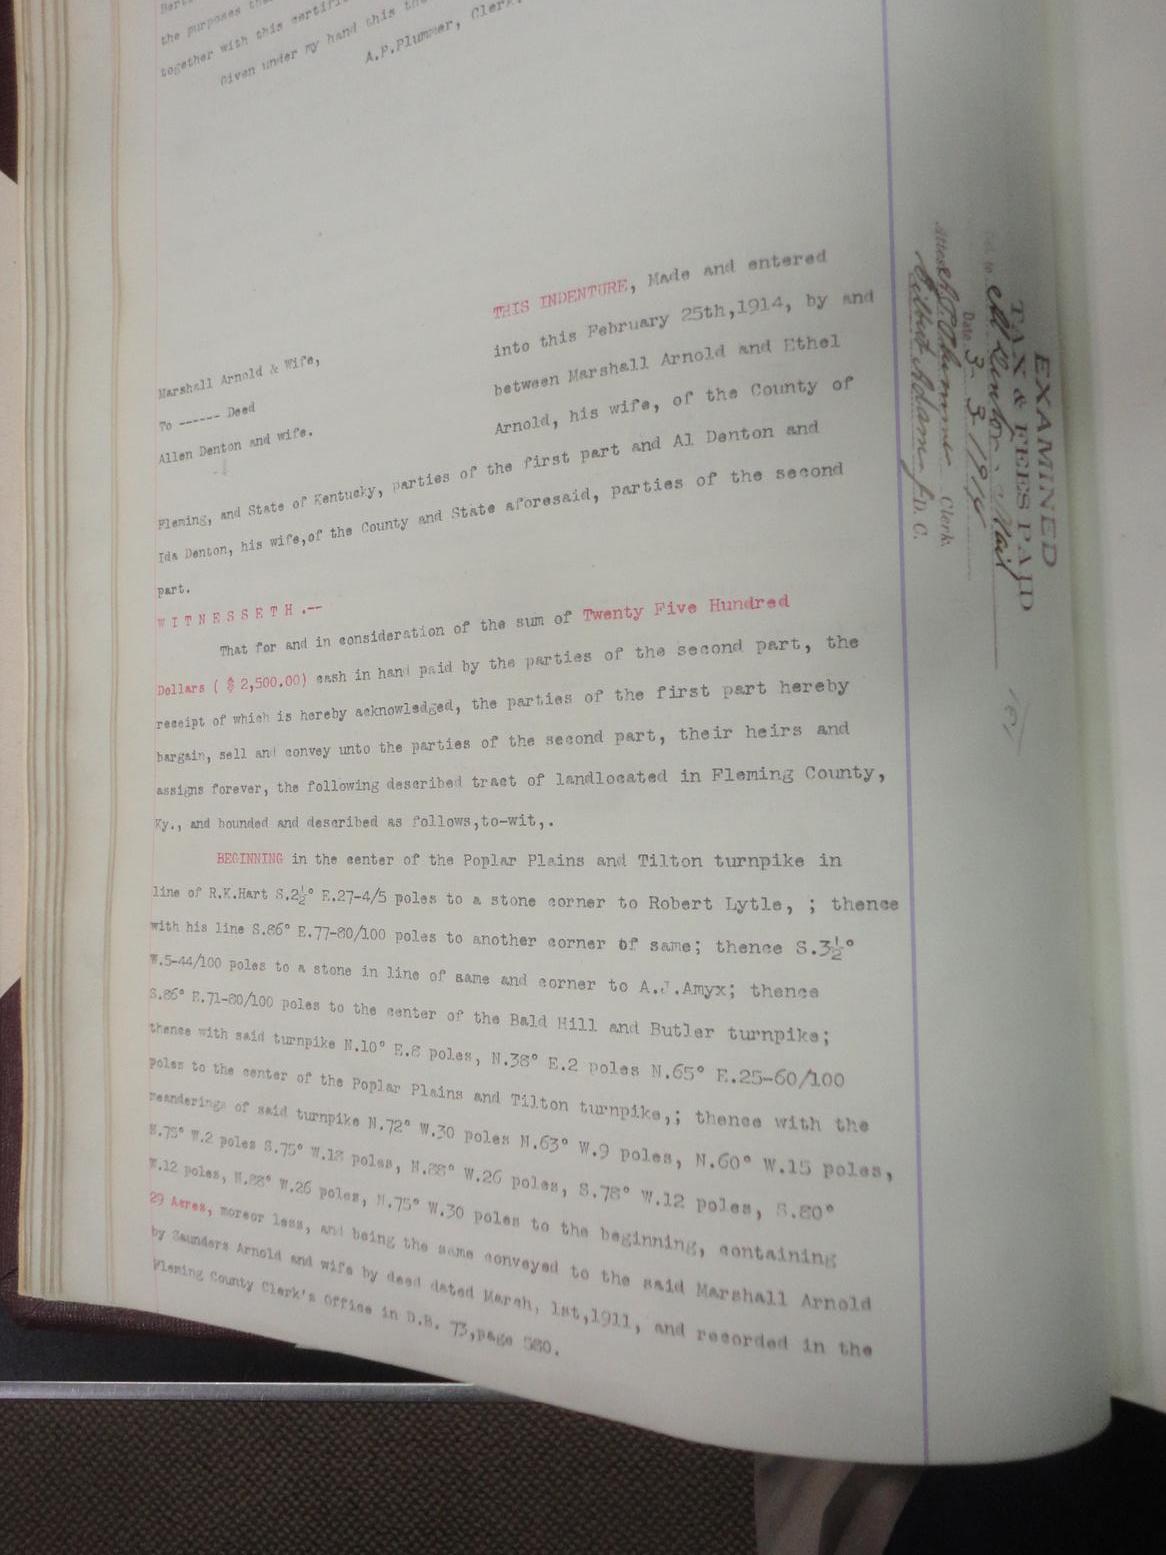 the purposes
together with this
Given under my hand this
A.P.Plummer, Clerk.
Marshall Arnold & Wife,
To ------ Deed
Allen Denton and wife.
THIS INDENTURE, Made and entered
into this February 25th,1914, by and
between Marshall Arnold and Ethel
Arnold, his wife, of the County of
Fleming, and State of Kentucky, parties of the first part and Al Denton and
Ida Denton, his wife,of the County and State aforesaid, parties of the second
part.
W I T N E S S E T H .--
That for and in consideration of the sum of Twenty Five Hundred
Dollars ( $ 2,500.00) cash in hand paid by the parties of the second part, the
receipt of which is hereby acknowledged, the parties of the first part hereby
bargain, sell and convey unto the parties of the second part, their heirs and
assigns forever, the following described tract of landlocated in Fleming County,
Ky., and bounded and described as follows,to-wit,.
BEGINNING in the center of the Poplar Plains and Tilton turnpike in
line of R.K.Hart S.2½° E.27-4/5 poles to a stone corner to Robert Lytle, ; thence
with his line S.86° E.77-80/100 poles to another corner of same; thence S.3½°
W.5-44/100 poles to a stone in line of same and corner to A.J.Amyx; thence
S.86° E.71-80/100 poles to the center of the Bald Hill and Butler turnpike;
thence with said turnpike N.10° E.8 poles, N.38° E.2 poles N.65° E.25-60/100
poles to the center of the Poplar Plains and Tilton turnpike,; thence with the
meanderings of said turnpike N.72° W.30 poles N.63° W.9 poles, N.60° W.15 poles,
N.75° W.2 poles S.75° W.18 poles, N.88° W.26 poles, S.78° W.12 poles, S.80°
W.12 poles, N.88° W.26 poles, N.75° W.30 poles to the beginning, containing
29 Acres, moreor less, and being the same conveyed to the said Marshall Arnold
by Saunders Arnold and wife by deed dated March, 1st,1911, and recorded in the
Fleming County Clerk's Office in D.B. 73,page 580.
EXAMINED
TAX & FEES PAID
Al Denton Mail
Date 3-3-1914
Attest Clerk.
Adams D. C.